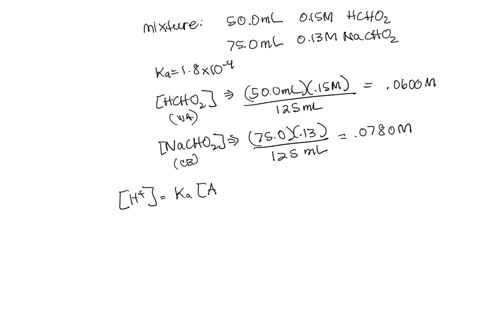 mixture: 50.0mL 0.15M HCHO₂
75.0mL 0.13M NaCHO₂
Ka=1.8x10⁻⁴
[HCHO₂] ⇒ (50.0mL)(.15M) / 125mL = .0600M
(WA)
[NaCHO₂] ⇒ (75.0)(.13) / 125 mL = .0780M
(CB)
[H⁺] = Ka [A